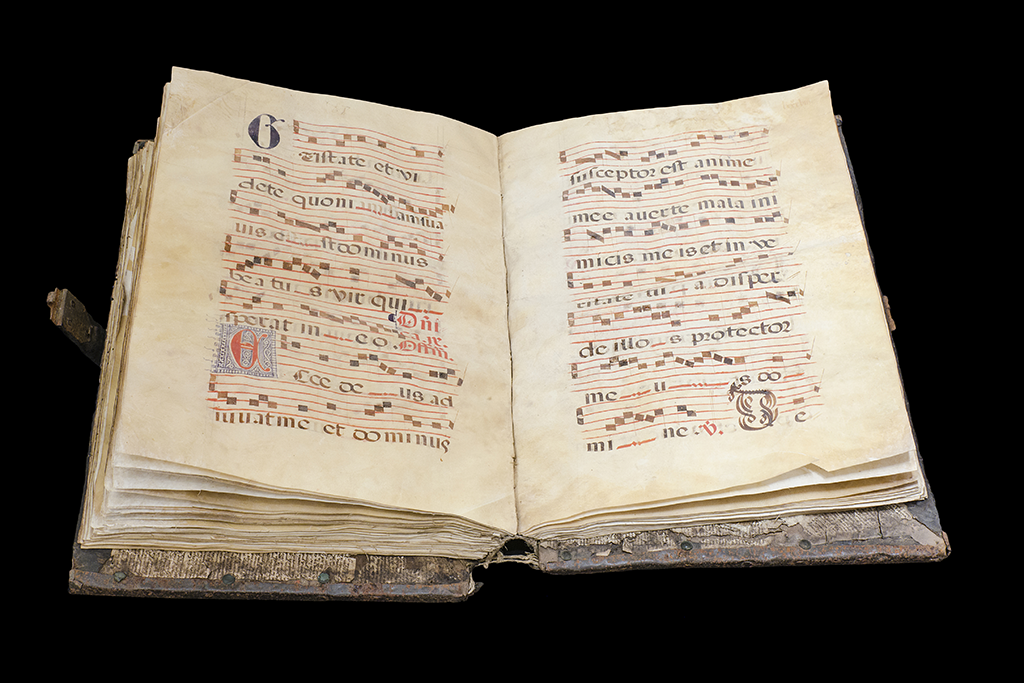 Gustate et vi
dete quoni am sua
uis e st dominus
be a tu s vir qui
sperat in e o. Dñi
Ecce de us ad
iuuat me et dominus
susceptor est anime
mee auerte mala ini
micis me is et in ve
ritate tu a disper
de illo s protector
me u s do
mi ne V. D e